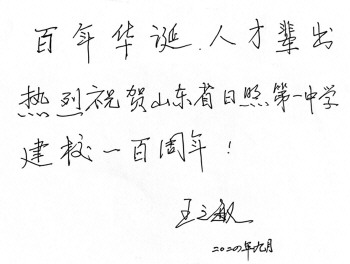 百年华诞.人才辈出
热烈祝贺山东省日照第一中学
建校一百周年！
王立敏
二〇二四年九月